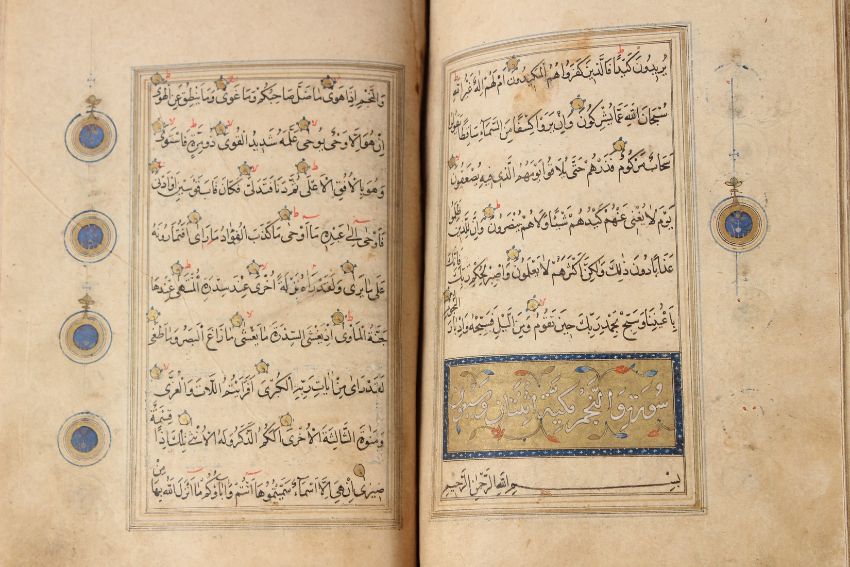 يُرِيدُونَ كَيْدًا فَالَّذِينَ كَفَرُوا هُمُ الْمَكِيدُونَ أَمْ لَهُمْ إِلَهٌ غَيْرُ اللَّهِ
سُبْحَانَ اللَّهِ عَمَّا يُشْرِكُونَ وَإِنْ يَرَوْا كِسْفًا مِنَ السَّمَاءِ سَاقِطًا يَقُولُوا
سَحَابٌ مَرْكُومٌ فَذَرْهُمْ حَتَّى يُلَاقُوا يَوْمَهُمُ الَّذِي فِيهِ يُصْعَقُونَ
يَوْمَ لَا يُغْنِي عَنْهُمْ كَيْدُهُمْ شَيْئًا وَلَا هُمْ يُنْصَرُونَ وَإِنَّ لِلَّذِينَ ظَلَمُوا
عَذَابًا دُونَ ذَلِكَ وَلَكِنَّ أَكْثَرَهُمْ لَا يَعْلَمُونَ وَاصْبِرْ لِحُكْمِ رَبِّكَ فَإِنَّكَ
بِأَعْيُنِنَا وَسَبِّحْ بِحَمْدِ رَبِّكَ حِينَ تَقُومُ وَمِنَ اللَّيْلِ فَسَبِّحْهُ وَإِدْبَارَ النُّجُومِ
سُورَة وَالنَّجْمِ مَكِّيَّة اثْنَتَانِ وَسِتُّونَ
بِسْمِ اللَّهِ الرَّحْمٰنِ الرَّحِيمِ
وَالنَّجْمِ إِذَا هَوَى مَا ضَلَّ صَاحِبُكُمْ وَمَا غَوَى وَمَا يَنْطِقُ عَنِ الْهَوَى
إِنْ هُوَ إِلَّا وَحْيٌ يُوحَى عَلَّمَهُ شَدِيدُ الْقُوَى ذُو مِرَّةٍ فَاسْتَوَى
وَهُوَ بِالْأُفُقِ الْأَعْلَى ثُمَّ دَنَا فَتَدَلَّى فَكَانَ قَابَ قَوْسَيْنِ أَوْ أَدْنَى
فَأَوْحَى إِلَى عَبْدِهِ مَا أَوْحَى مَا كَذَبَ الْفُؤَادُ مَا رَأَى أَفَتُمَارُونَهُ
عَلَى مَا يَرَى وَلَقَدْ رَآهُ نَزْلَةً أُخْرَى عِنْدَ سِدْرَةِ الْمُنْتَهَى عِنْدَهَا
جَنَّةُ الْمَأْوَى إِذْ يَغْشَى السِّدْرَةَ مَا يَغْشَى مَا زَاغَ الْبَصَرُ وَمَا طَغَى
لَقَدْ رَأَى مِنْ آيَاتِ رَبِّهِ الْكُبْرَى أَفَرَأَيْتُمُ اللَّاتَ وَالْعُزَّى
وَمَنَاةَ الثَّالِثَةَ الْأُخْرَى أَلَكُمُ الذَّكَرُ وَلَهُ الْأُنْثَى تِلْكَ إِذًا قِسْمَةٌ
ضِيزَى إِنْ هِيَ إِلَّا أَسْمَاءٌ سَمَّيْتُمُوهَا أَنْتُمْ وَآبَاؤُكُمْ مَا أَنْزَلَ اللَّهُ بِهَا مِنْ